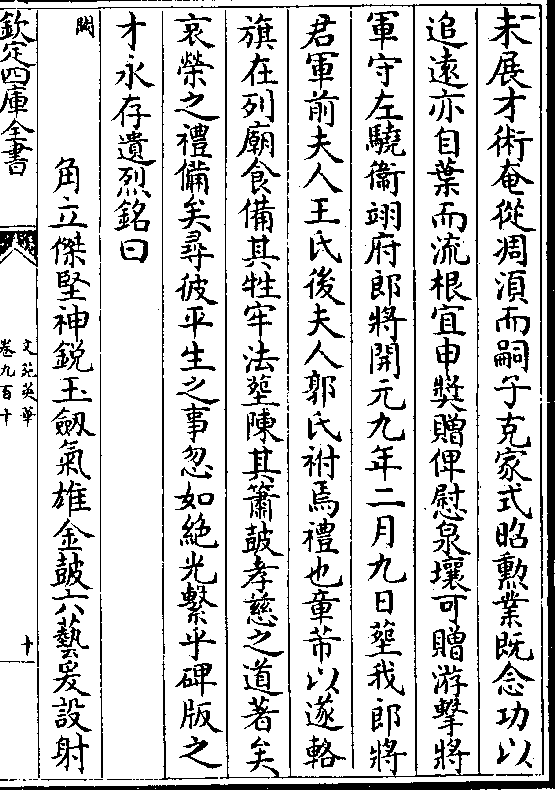 未展才術奄從凋湏而嗣子克家式昭勲業既念功以
追遠亦自葉而流根宜申奬贈俾慰泉壤可贈游擊將
軍守左驍衞翊府郎將開元九年二月九日塟我郎將
君軍前夫人王氏後夫人郭氏祔焉禮也章芾以遂輅
旗在列廟食備其牲牢法塟陳其簫鼓孝慈之道著矣
哀榮之禮備矣尋彼平生之事忽如絶光繫乎碑版之
才永存遺烈銘曰
闕 角立傑堅神鋭玉劒氣雄金鼓六藝爰設射
欽定四庫全書
文苑英華
卷九百十
十